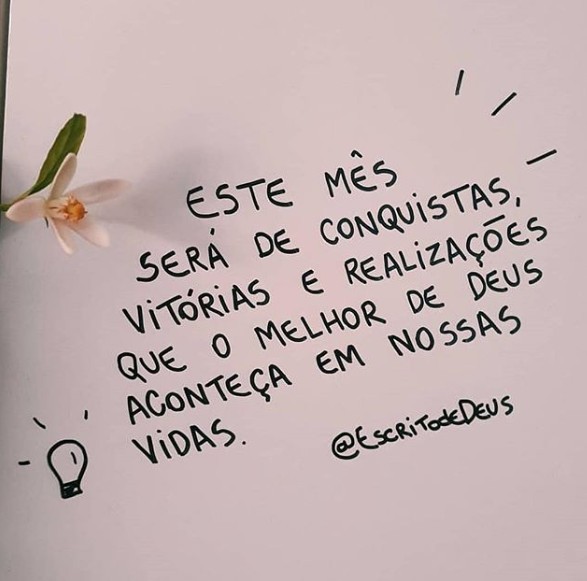 ESTE MÊS
SERÁ DE CONQUISTAS,
VITÓRIAS E REALIZAÇÕES
QUE O MELHOR DE DEUS
ACONTEÇA EM NOSSAS
VIDAS.
@ESCRITODEDEUS